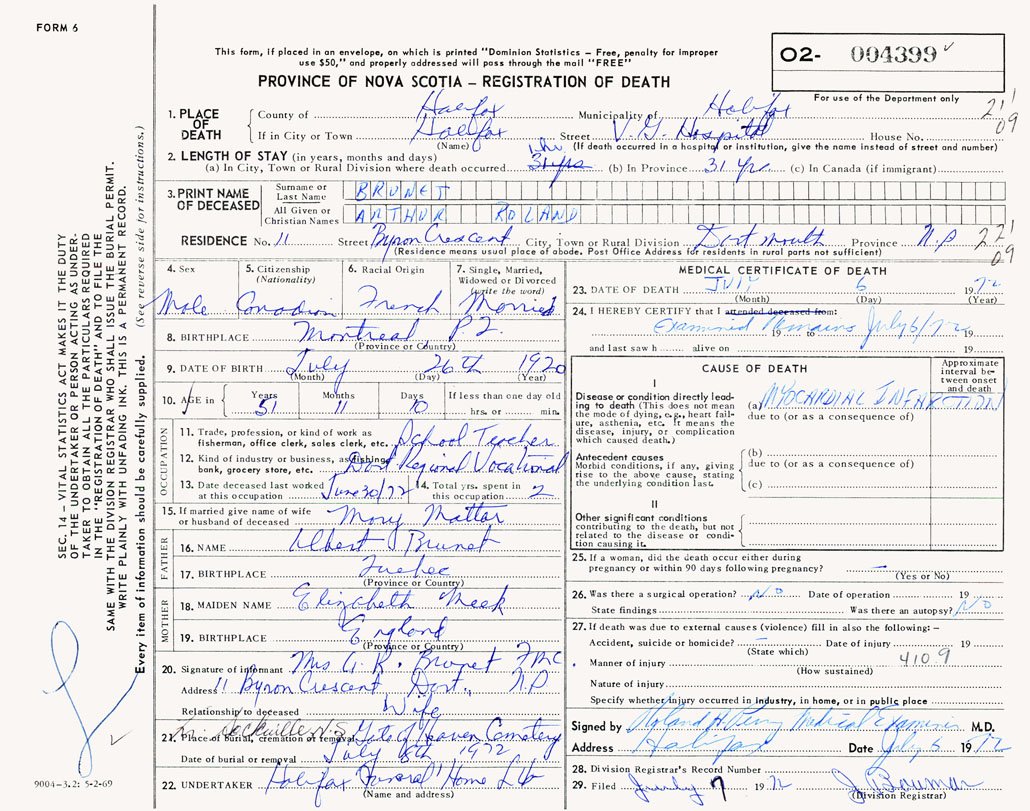 FORM 6
This form, if placed in an envelope, on which is printed "Dominion Statistics – Free, penalty for improper
use $50," and properly addressed will pass through the mail "FREE"
PROVINCE OF NOVA SCOTIA – REGISTRATION OF DEATH
02- 004399
For use of the Department only
1. PLACE OF DEATH
County of Halifax Municipality of Halifax
If in City or Town Halifax Street V. G. Hospital House No.
(Name) (If death occurred in a hospital or institution, give the name instead of street and number)
21 1
09
2. LENGTH OF STAY (in years, months and days)
1 hr.
(a) In City, Town or Rural Division where death occurred 31 yrs (b) In Province 31 yrs (c) In Canada (if immigrant)
3. PRINT NAME OF DECEASED
Surname or Last Name BRUNET
All Given or Christian Names ARTHUR ROLAND
RESIDENCE No. 11 Street Byron Crescent City, Town or Rural Division Dartmouth Province N.S
(Residence means usual place of abode. Post Office Address for residents in rural parts not sufficient)
22 1
09
4. Sex
Male
5. Citizenship
(Nationality)
Canadian
6. Racial Origin
French
7. Single, Married,
Widowed or Divorced
(write the word)
Married
8. BIRTHPLACE Montreal P.Q.
(Province or Country)
9. DATE OF BIRTH July 26th 1920
(Month) (Day) (Year)
10. AGE in Years Months Days If less than one day old
51 11 10 hrs. or min.
OCCUPATION
11. Trade, profession, or kind of work as
fisherman, office clerk, sales clerk, etc. School Teacher
12. Kind of industry or business, as fishing,
bank, grocery store, etc. Dart Regional Vocational
13. Date deceased last worked
at this occupation June 30/72
14. Total yrs. spent in
this occupation 2
15. If married give name of wife
or husband of deceased Mary Mattar
FATHER
16. NAME Albert Brunet
17. BIRTHPLACE Quebec
(Province or Country)
MOTHER
18. MAIDEN NAME Elizabeth Meek
19. BIRTHPLACE England
(Province or Country)
20. Signature of informant Mrs A. R. Brunet
Address 11 Byron Crescent Dart., N.S
Relationship to deceased Wife
21. Place of burial, cremation or removal Gate of Heaven Cemetery
Sackville N.S.
Date of burial or removal July 8th 1972
22. UNDERTAKER Halifax Funeral Home Ltd
(Name and address)
MEDICAL CERTIFICATE OF DEATH
23. DATE OF DEATH JULY 6 1972
(Month) (Day) (Year)
24. I HEREBY CERTIFY that I attended deceased from:
Examined Remains July 6/72
19 to 19
and last saw h alive on 19
CAUSE OF DEATH
Approximate
interval be-
tween onset
and death
I
Disease or condition directly lead-
ing to death (This does not mean
the mode of dying, e.g., heart fail-
ure, asthenia, etc. It means the
disease, injury, or complication
which caused death.)
(a) MYOCARDIAL INFARCTION
due to (or as a consequence of)
Antecedent causes
Morbid conditions, if any, giving
rise to the above cause, stating
the underlying condition last.
(b)
due to (or as a consequence of)
(c)
II
Other significant conditions
contributing to the death, but not
related to the disease or condi-
tion causing it.
25. If a woman, did the death occur either during
pregnancy or within 90 days following pregnancy? –
(Yes or No)
26. Was there a surgical operation? NO Date of operation 19
State findings Was there an autopsy? NO
27. If death was due to external causes (violence) fill in also the following: –
Accident, suicide or homicide? – Date of injury 19
(State which)
Manner of injury 410.9
(How sustained)
Nature of injury
Specify whether injury occurred in industry, in home, or in public place
Signed by Roland A. Perry Medical Examiner M.D.
Address Halifax Date July 6 1972
28. Division Registrar's Record Number
29. Filed July 7 1972 J. Bowmar
(Division Registrar)
SEC. 14 – VITAL STATISTICS ACT MAKES IT THE DUTY
OF THE UNDERTAKER OR PERSON ACTING AS UNDER-
TAKER TO OBTAIN ALL THE PARTICULARS REQUIRED
IN THE "REGISTRATION OF DEATH" AND TO FILE THE
SAME WITH THE DIVISION REGISTRAR WHO SHALL ISSUE THE BURIAL PERMIT.
WRITE PLAINLY WITH UNFADING INK. THIS IS A PERMANENT RECORD.
Every item of information should be carefully supplied. (See reverse side for instructions.)
9004-3.2: 5-2-69